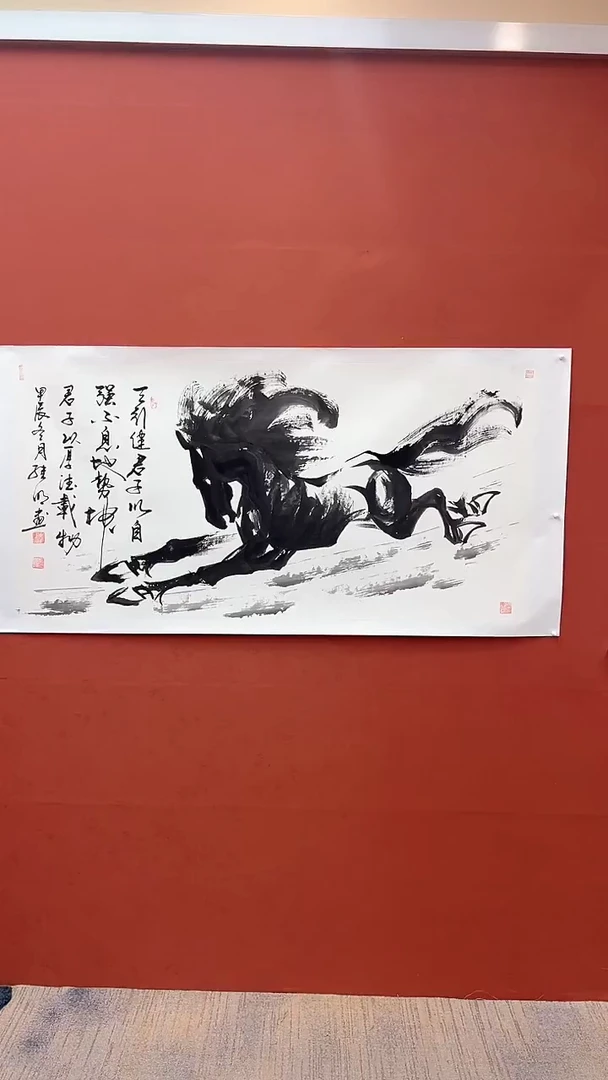 天行健君子以自
强不息地勢坤
君子以厚德載物
甲辰冬月明画